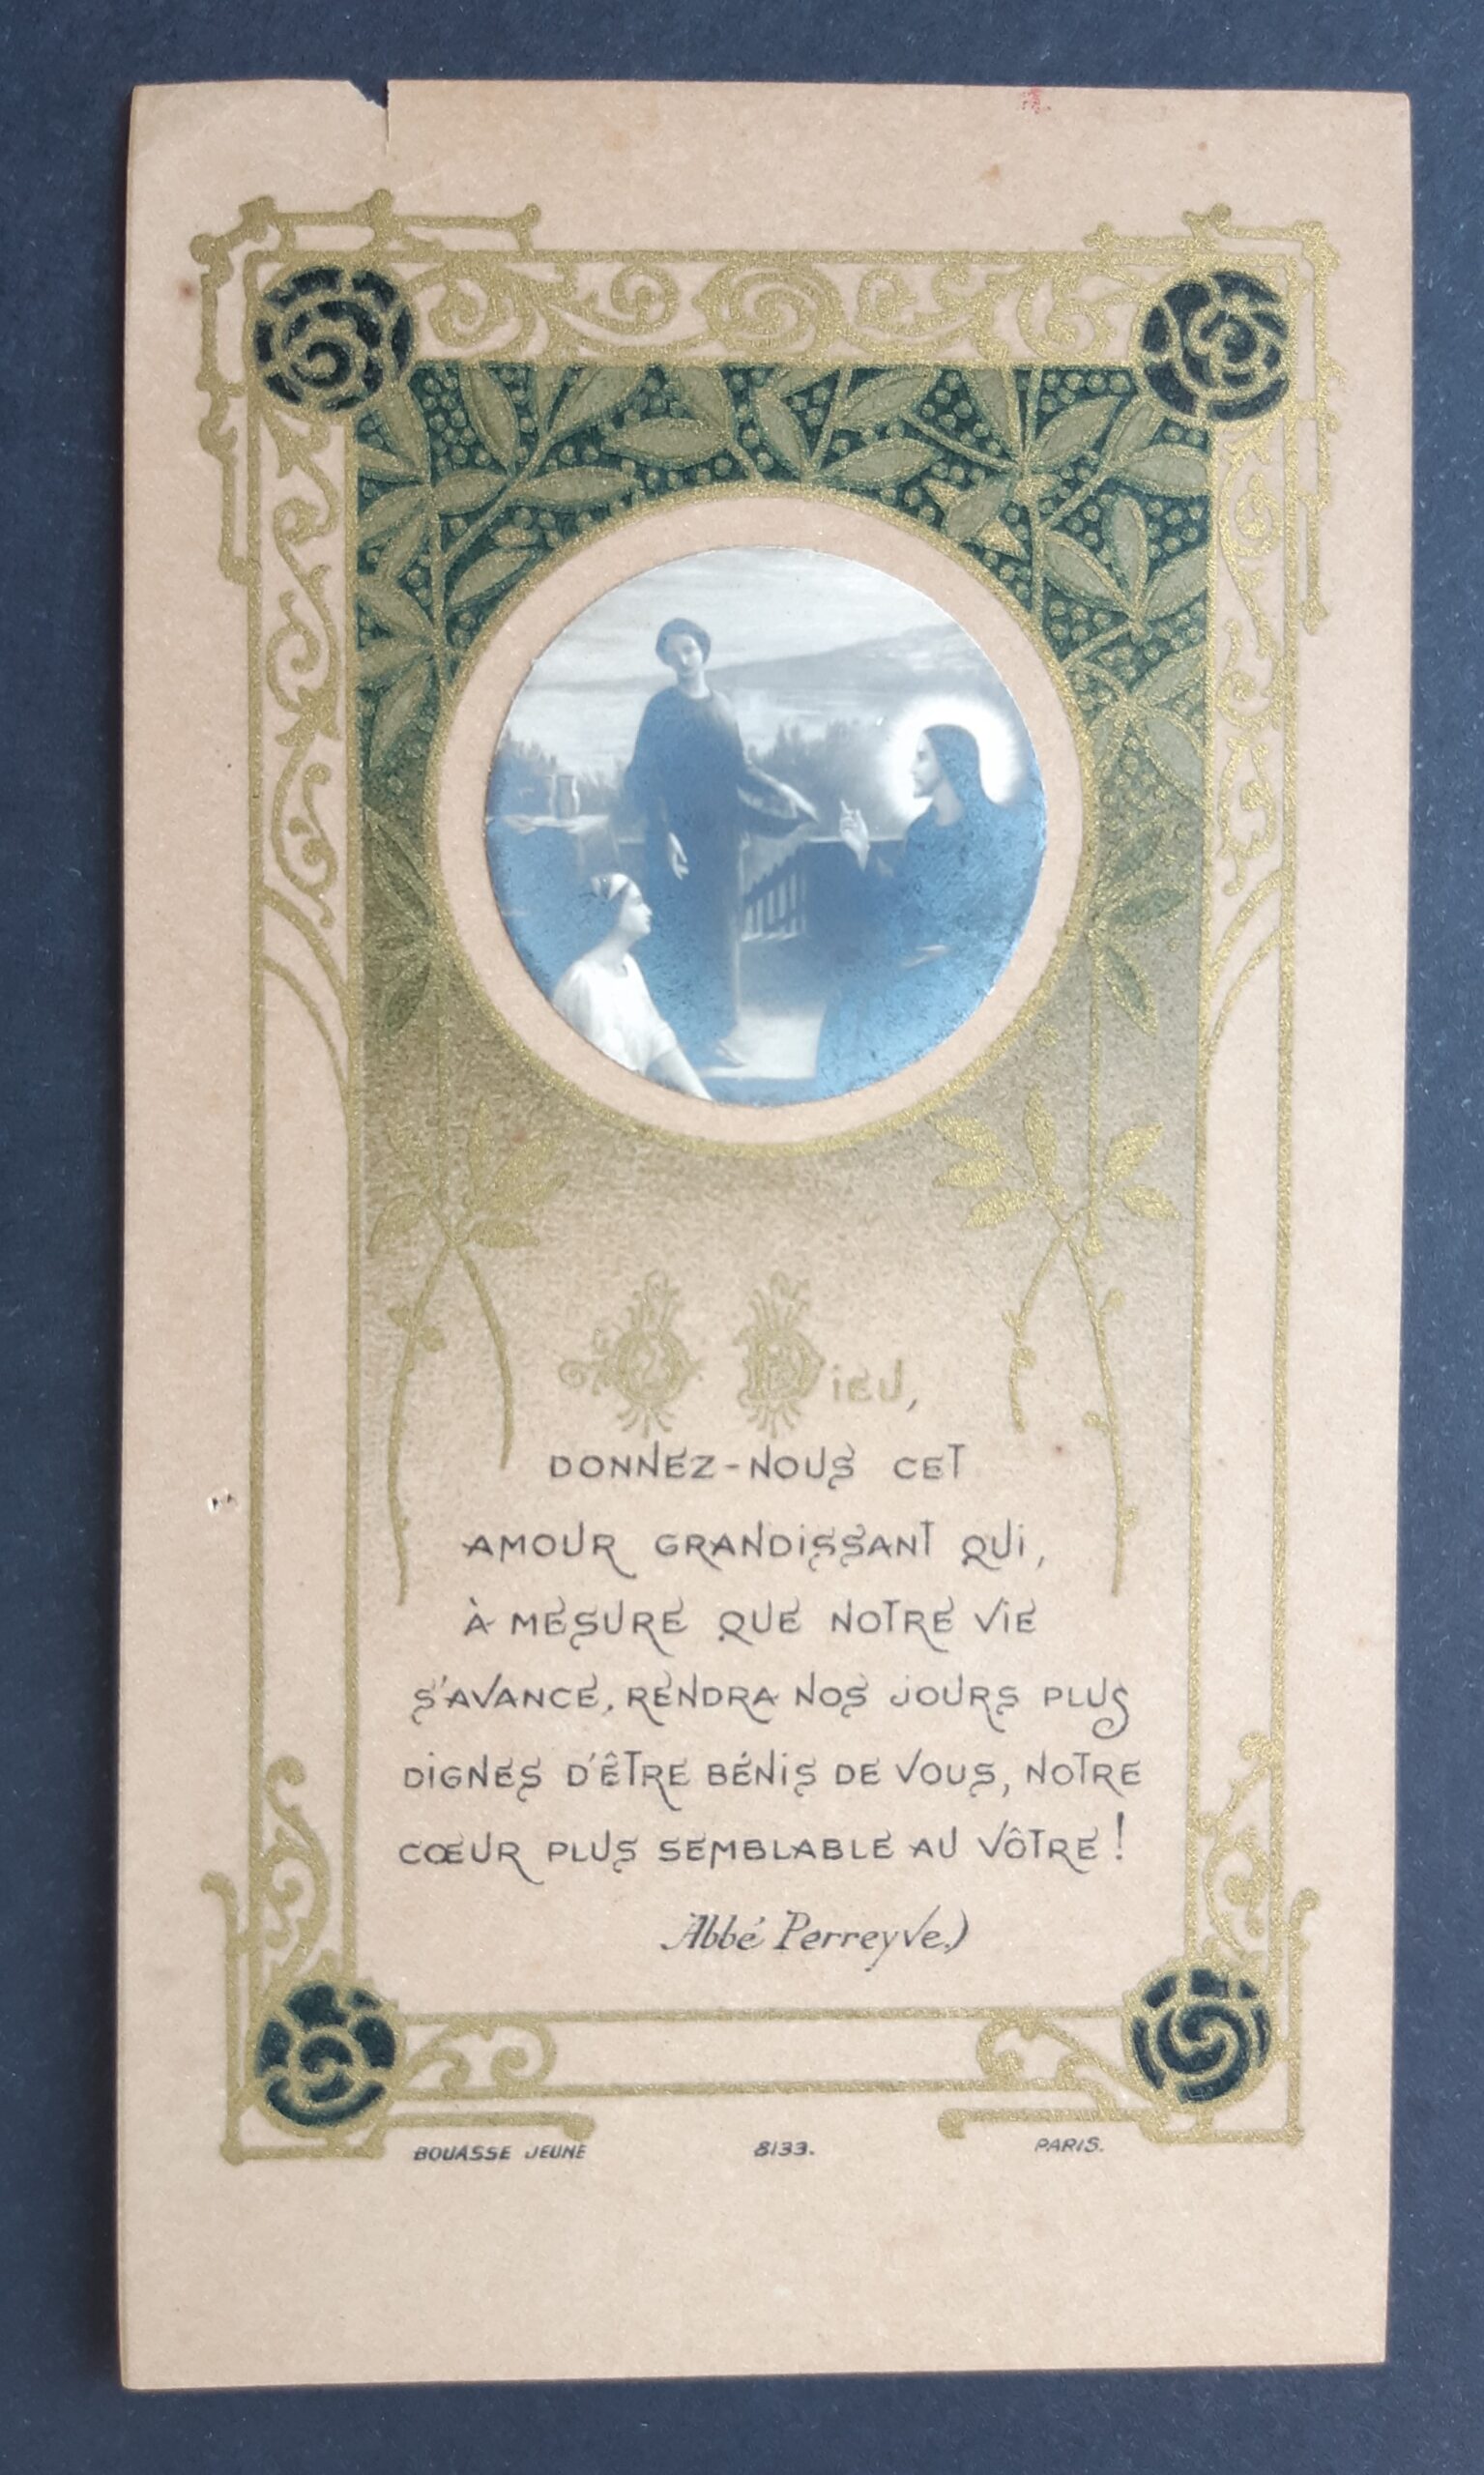 Ô Dieu,
DONNEZ-NOUS CET
AMOUR GRANDISSANT QUI,
À MESURE QUE NOTRE VIE
S'AVANCE, RENDRA NOS JOURS PLUS
DIGNES D'ÊTRE BÉNIS DE VOUS, NOTRE
CŒUR PLUS SEMBLABLE AU VÔTRE !
Abbé Perreyve.)
BOUASSE JEUNE 8133. PARIS.